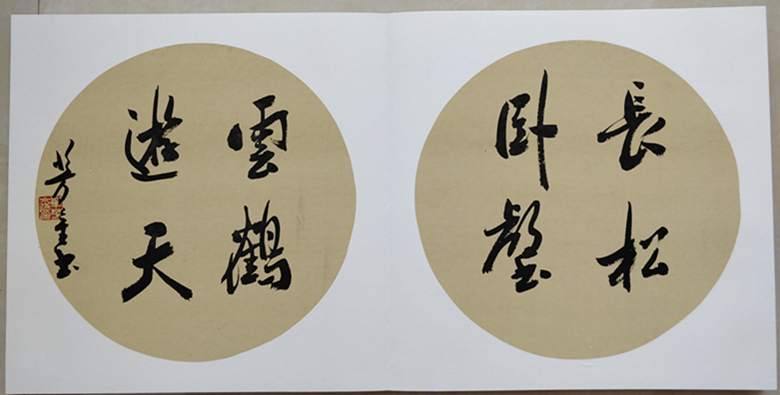 長松
卧壑
雲鶴
遊天